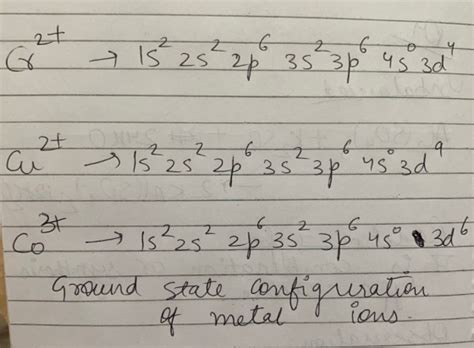 Cr²⁺ → 1s² 2s² 2p⁶ 3s² 3p⁶ 4s⁰ 3d⁴
Cu²⁺ → 1s² 2s² 2p⁶ 3s² 3p⁶ 4s⁰ 3d⁹
Co³⁺ → 1s² 2s² 2p⁶ 3s² 3p⁶ 4s⁰ 3d⁶
Ground state configuration
of metal ions.